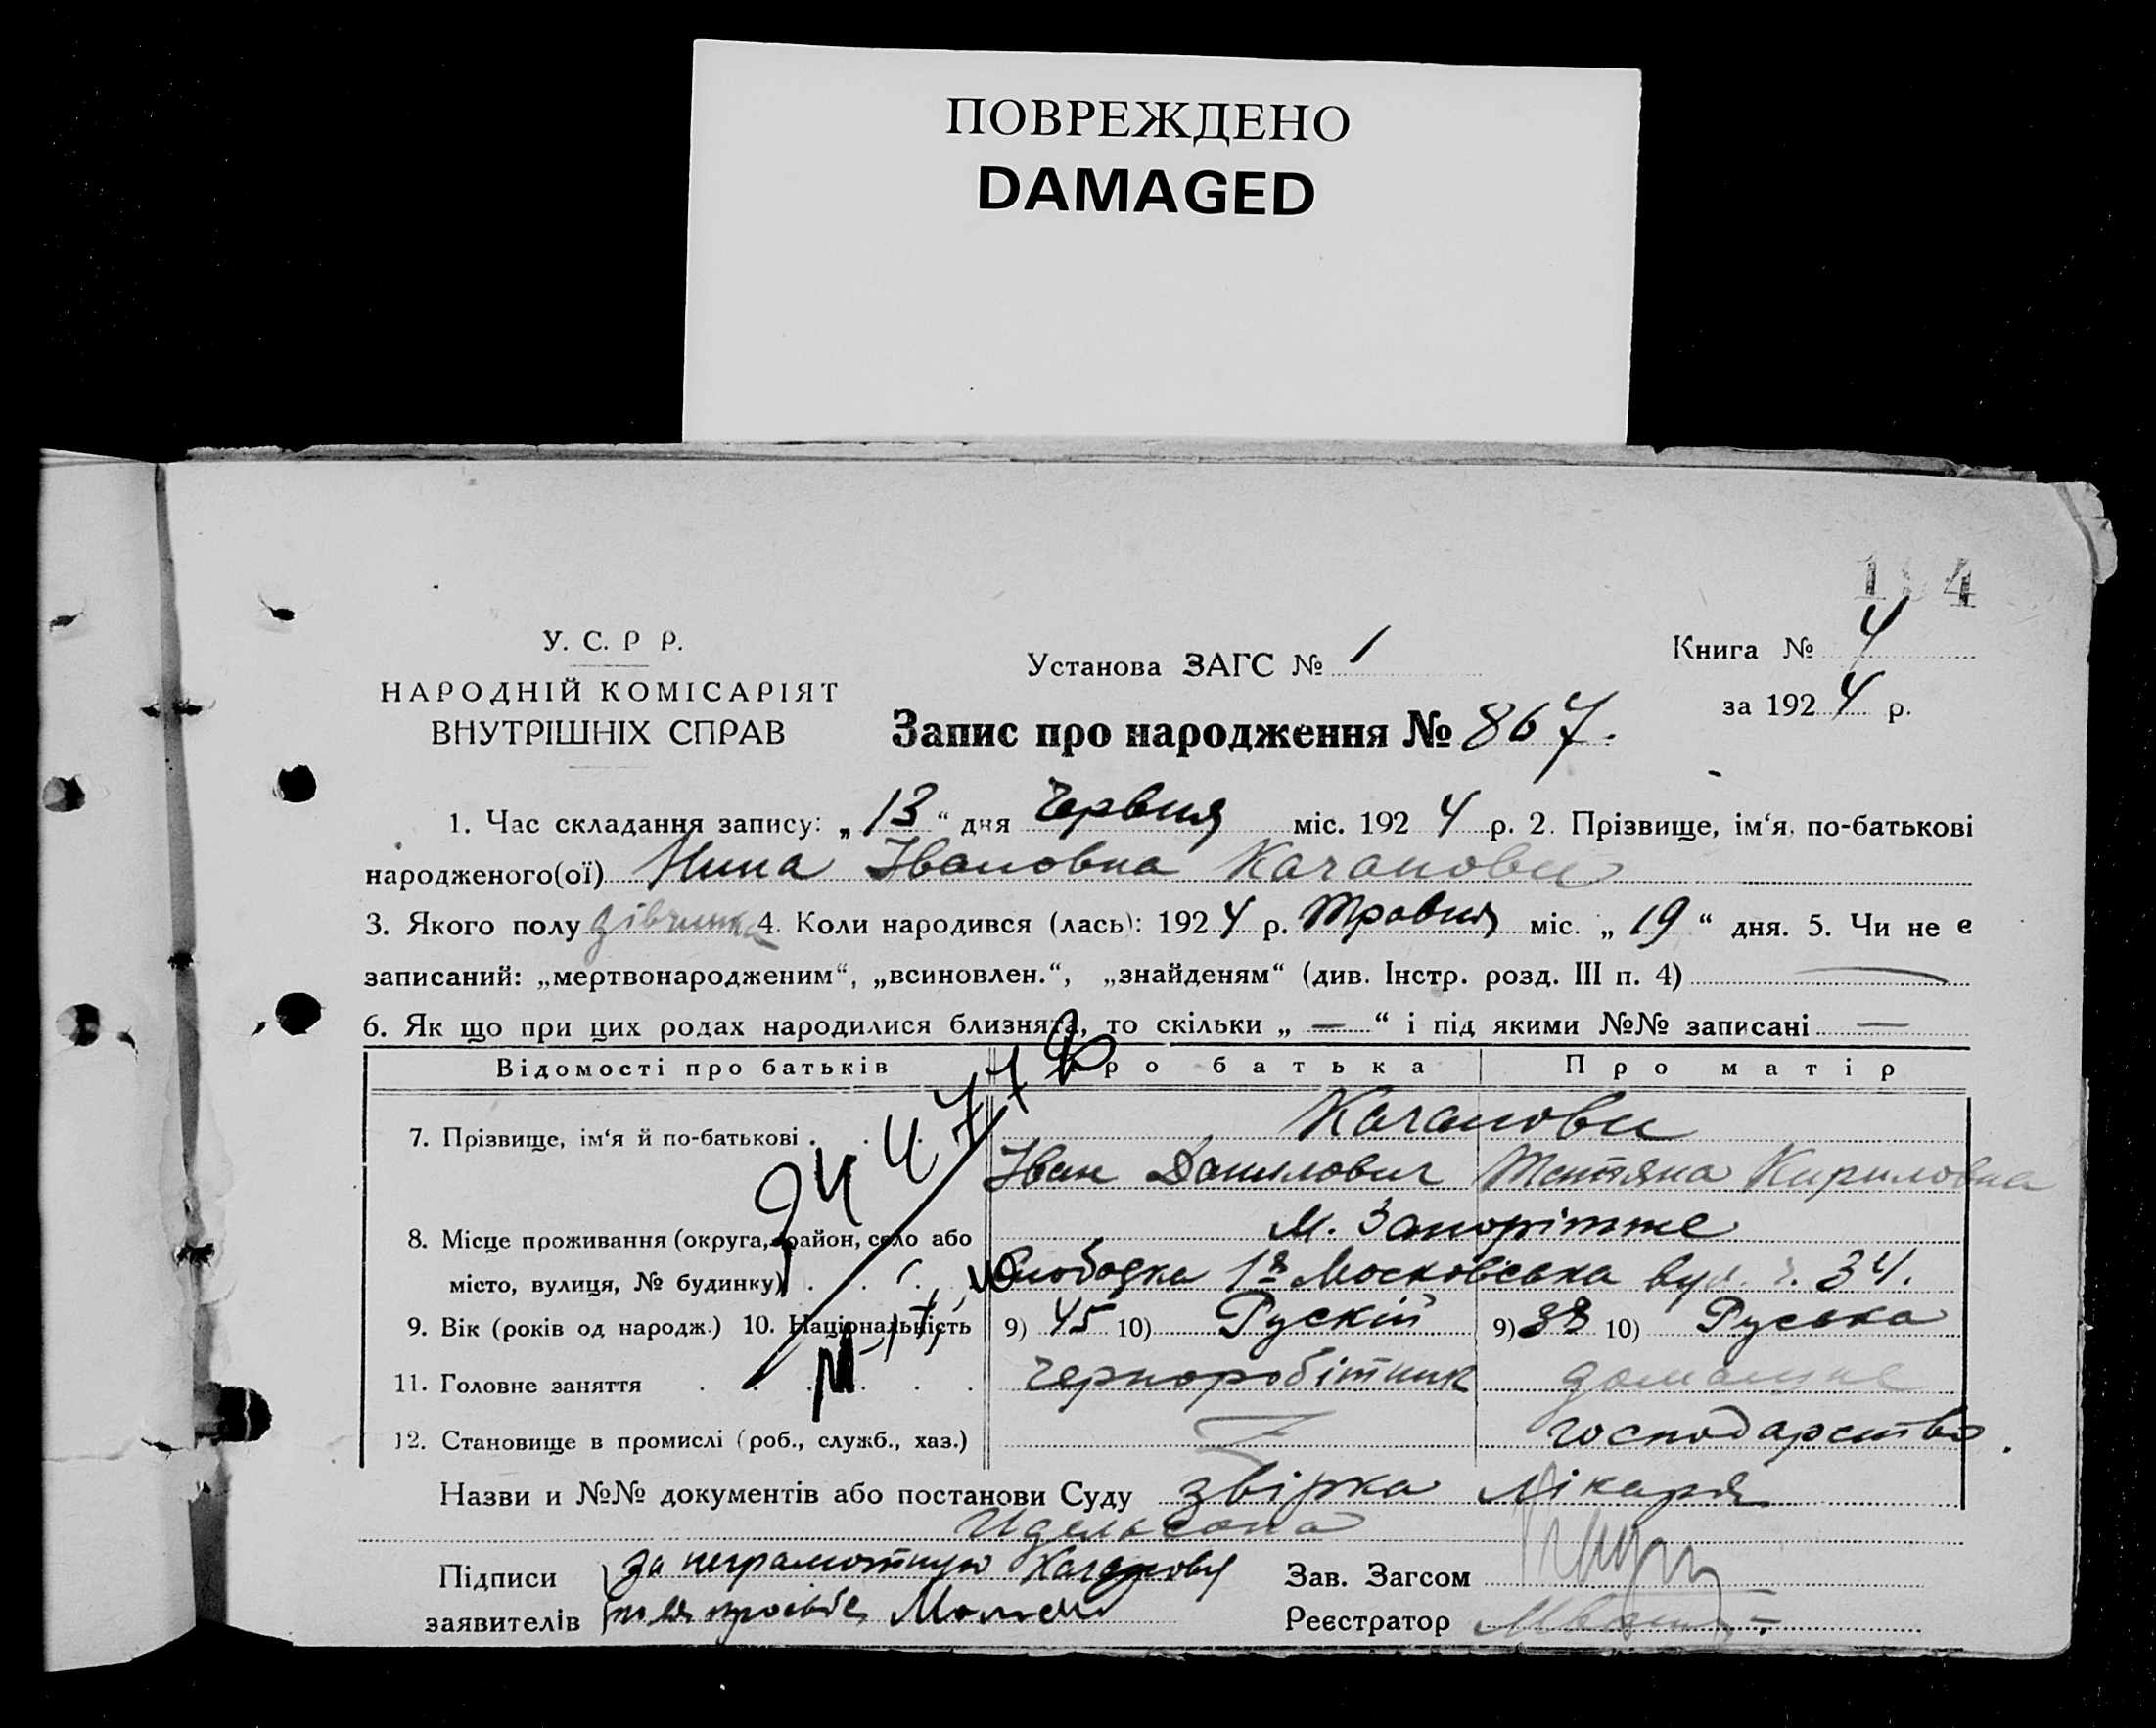 ПОВРЕЖДЕНО
DAMAGED
У. С. Р Р.
НАРОДНІЙ КОМІСАРІЯТ
ВНУТРІШНІХ СПРАВ
Установа ЗАГС № 1
Книга № 4
за 1924 р.
Запис про народження № 867.
1. Час складання запису: „13“ дня Червня міс. 1924 р. 2. Прізвище, ім‘я, по-батькові
народженого(ої) Нина Івановна Качанови
3. Якого полу дівчинка 4. Коли народився (лась): 1924 р. Травня міс. „19“ дня. 5. Чи не є
записаний: „мертвонародженим“, „всиновлен.“, „знайденям“ (див. Інстр. розд. III п. 4) —
6. Як що при цих родах народилися близнята, то скільки „—“ і під якими №№ записані —
Відомості про батьків Про батька Про матір
7. Прізвище, ім‘я й по-батькові . . . Качанови
Іван Данилович Татяна Кириловна
8. Місце проживання (округа, район, село або м. Запоріжже
місто, вулиця, № будинку) . . . Слободка 1я Московська вул. ч. 34.
9. Вік (років од народж.) 10. Національність 9) 45 10) Рускій 9) 38 10) Руська
11. Головне заняття . . . . . . Черноробітник домашнє
господарство.
12. Становище в промислі (роб., служб., хаз.)
Назви и №№ документів або постанови Суду звірка лікаря
Идельсона
Підписи за неграмотную Качанову Зав. Загсом
заявителів по ея просьбе Реєстратор